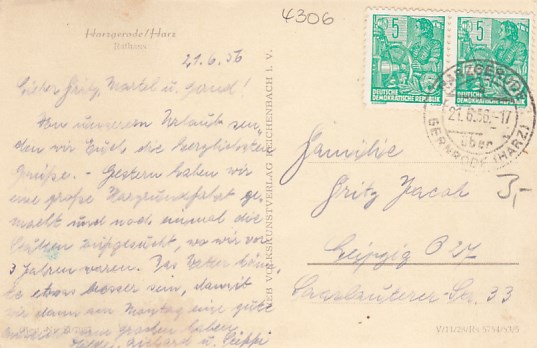 Harzgerode/Harz
Rathaus
4306
21.6.56
Lieber Fritz, Martel u. Gerd!
Von unserem Urlaub sen-
den wir Euch die herzlichsten
Grüße. - Gestern haben wir
eine große Harzrundfahrt ge-
macht und noch einmal die
Stätten aufgesucht, wo wir vor
3 Jahren waren. Das Wetter könn-
te etwas besser sein, damit
wir dann am Montag eine gute
haben.
u. Seppi
VEB VOLKSKUNSTVERLAG REICHENBACH I. V.
5
DEUTSCHE
DEMOKRATISCHE REPUBLIK
5
DEUTSCHE
DEMOKRATISCHE
HARZGERODE
21.6.56.-17
über
GERNRODE (HARZ)
Familie
Fritz Jacob
Leipzig O 27
Saarlauterer-Str. 33
3,-